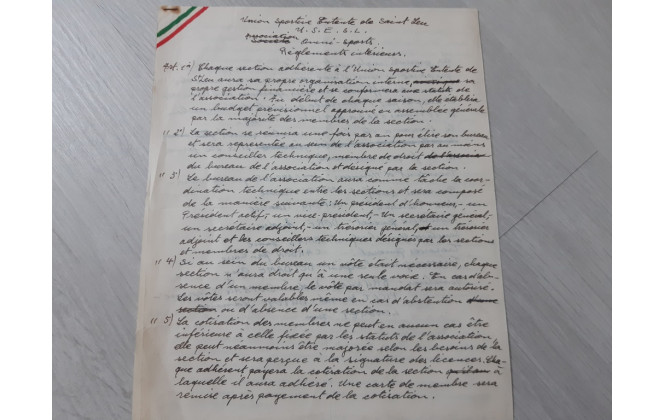 Union Sportive Entente de Saint Leu
U. S. E. S. L.
Association
Société Omni-Sports
Règlements intérieurs.
Art. 1°) Chaque section adhérente à l'Union Sportive Entente de
St Leu aura sa propre organisation interne, sa
propre gestion financière et se conformera aux statuts de
l'association. Au début de chaque saison, elle établira
un budget prévisionnel approuvé en assemblée générale
par la majorité des membres de la section.
" 2°) La section se réunira une fois par an pour élire son bureau
et sera représentée au sein de l'association par au moins
un conseiller technique, membre de droit de l'associa
du bureau de l'association et désigné par la section.
" 3°) Le bureau de l'association aura comme tâche la coor-
dination technique entre les sections et sera composé
de la manière suivante : Un président d'honneur, - un
Président actif, - un vice-président, - Un secrétaire général, -
un secrétaire adjoint, - un trésorier général, et un trésorier
adjoint et les conseillers techniques désignés par les sections
et membres de droit.
" 4°) Si au sein du bureau un vôte était nécessaire, chaque
section n'aura droit qu'à une seule voix. En cas d'ab-
sence d'un membre, le vôte par mandat sera autorisé.
Les vôtes seront valables même en cas d'abstention d'une
section ou d'absence d'une section.
" 5°) La cotisation des membres ne peut en aucun cas être
inférieure à celle fixée par les statuts de l'association.
elle peut néanmoins être majorée selon les besoins de la
section et sera perçue à la signature des licences. Cha-
que adhérent payera la cotisation de la section à
laquelle il aura adhéré. Une carte de membre sera
remise après payement de la cotisation.